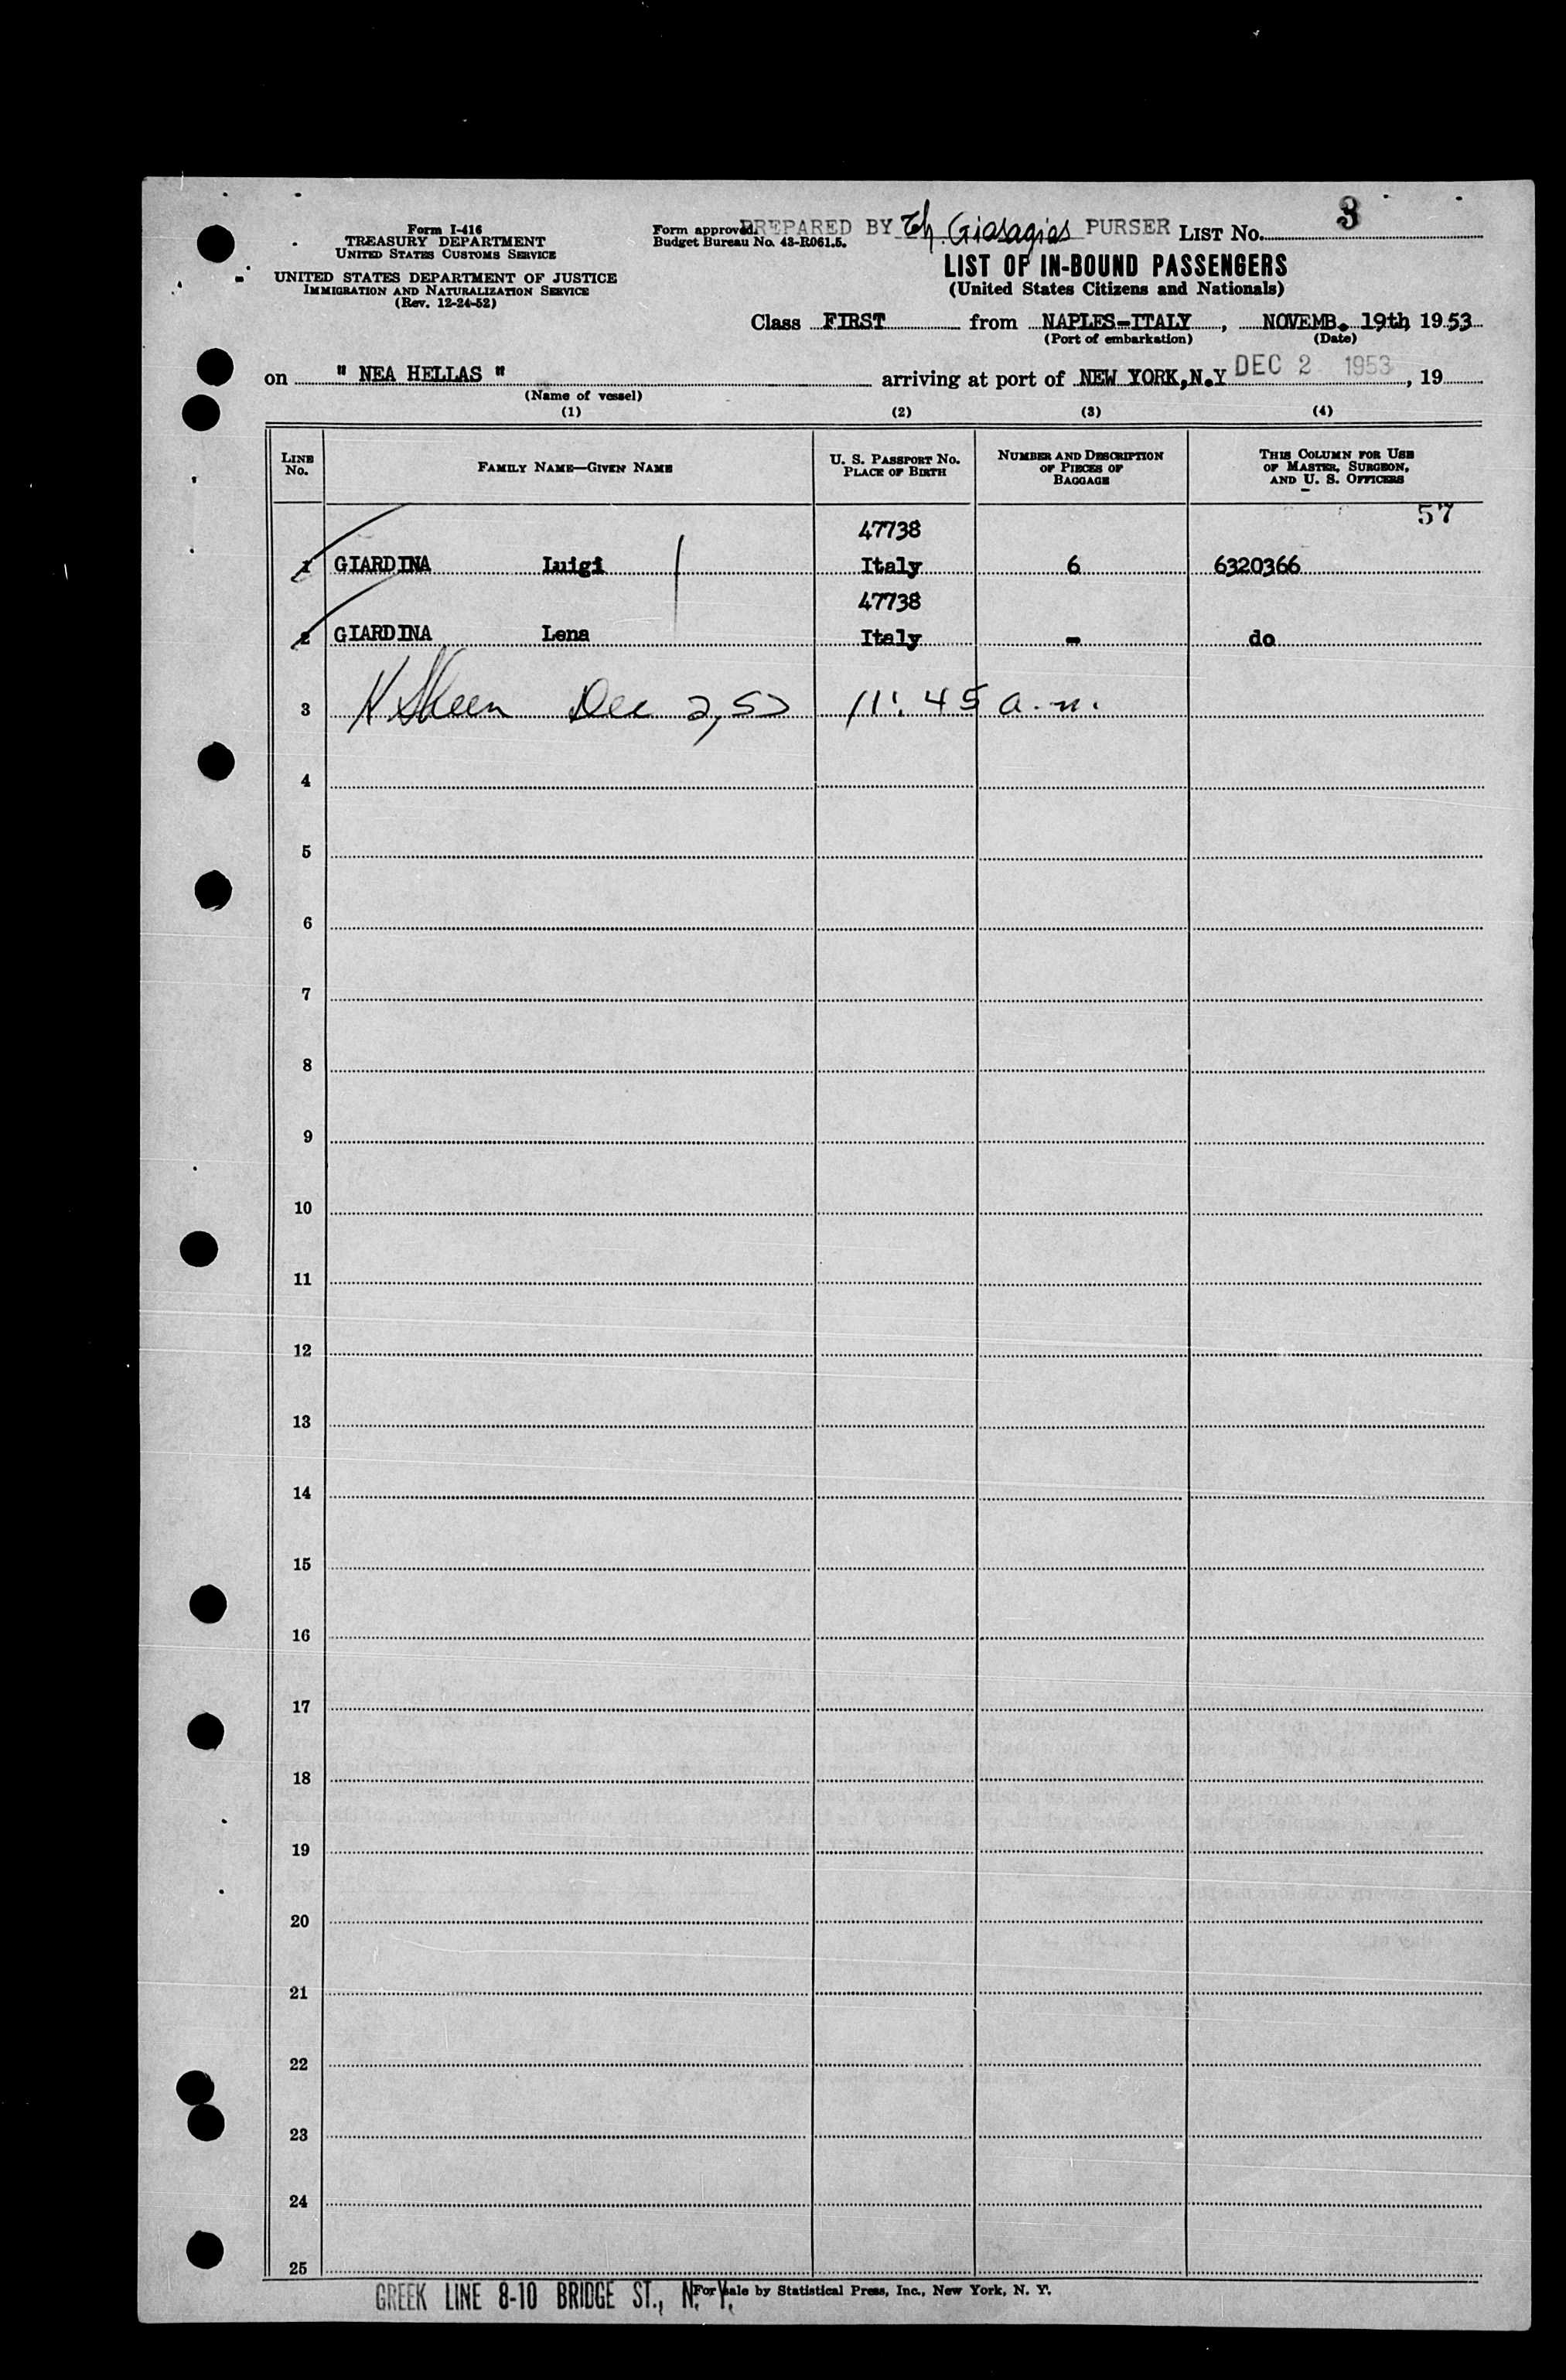 Form I-416
TREASURY DEPARTMENT
UNITED STATES CUSTOMS SERVICE
UNITED STATES DEPARTMENT OF JUSTICE
IMMIGRATION AND NATURALIZATION SERVICE
(Rev. 12-24-52)
Form approved.
Budget Bureau No. 43-R061.5.
PREPARED BY Th. Giasagias PURSER
LIST No. 3
LIST OF IN-BOUND PASSENGERS
(United States Citizens and Nationals)
Class FIRST from NAPLES-ITALY, NOVEMB. 19th 1953
(Port of embarkation) (Date)
on " NEA HELLAS " arriving at port of NEW YORK,N.Y DEC 2 1953, 19
(Name of vessel)
(1) (2) (3) (4)
LINE No. FAMILY NAME—GIVEN NAME U. S. PASSPORT No. PLACE OF BIRTH NUMBER AND DESCRIPTION OF PIECES OF BAGGAGE THIS COLUMN FOR USE OF MASTER, SURGEON, AND U. S. OFFICERS
57
47738
1 GIARDINA Luigi Italy 6 6320366
47738
2 GIARDINA Lena Italy - do
3 Dec 2, 53 11:45 a.m.
4
5
6
7
8
9
10
11
12
13
14
15
16
17
18
19
20
21
22
23
24
25
GREEK LINE 8-10 BRIDGE ST., N. Y.
For sale by Statistical Press, Inc., New York, N. Y.